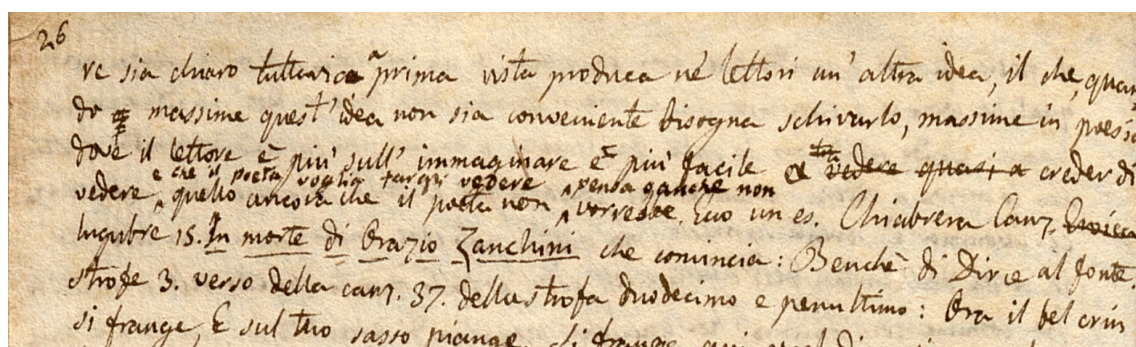 26
re sia chiaro tuttavia a prima vista produca ne' lettori un' altra idea, il che, quan
do massime quest' idea non sia conveniente bisogna schivarlo, massime in poesia
dove il lettore è più sull' immaginare e più facile a vedere quasi a creder di
e che il poeta voglia fargli vedere pensa o anche non
vedere quello ancora che il poeta non vorrebbe. Ecco un es. Chiabrera Canz.
lugubre 15. In morte di Orazio Zanchini che comincia: Benchè di Dirce al fonte.
strofe 3. verso della canz. 37. della strofa duodecimo e penultimo: Ora il bel crin
si frange, E sul tuo sasso piange. si frange